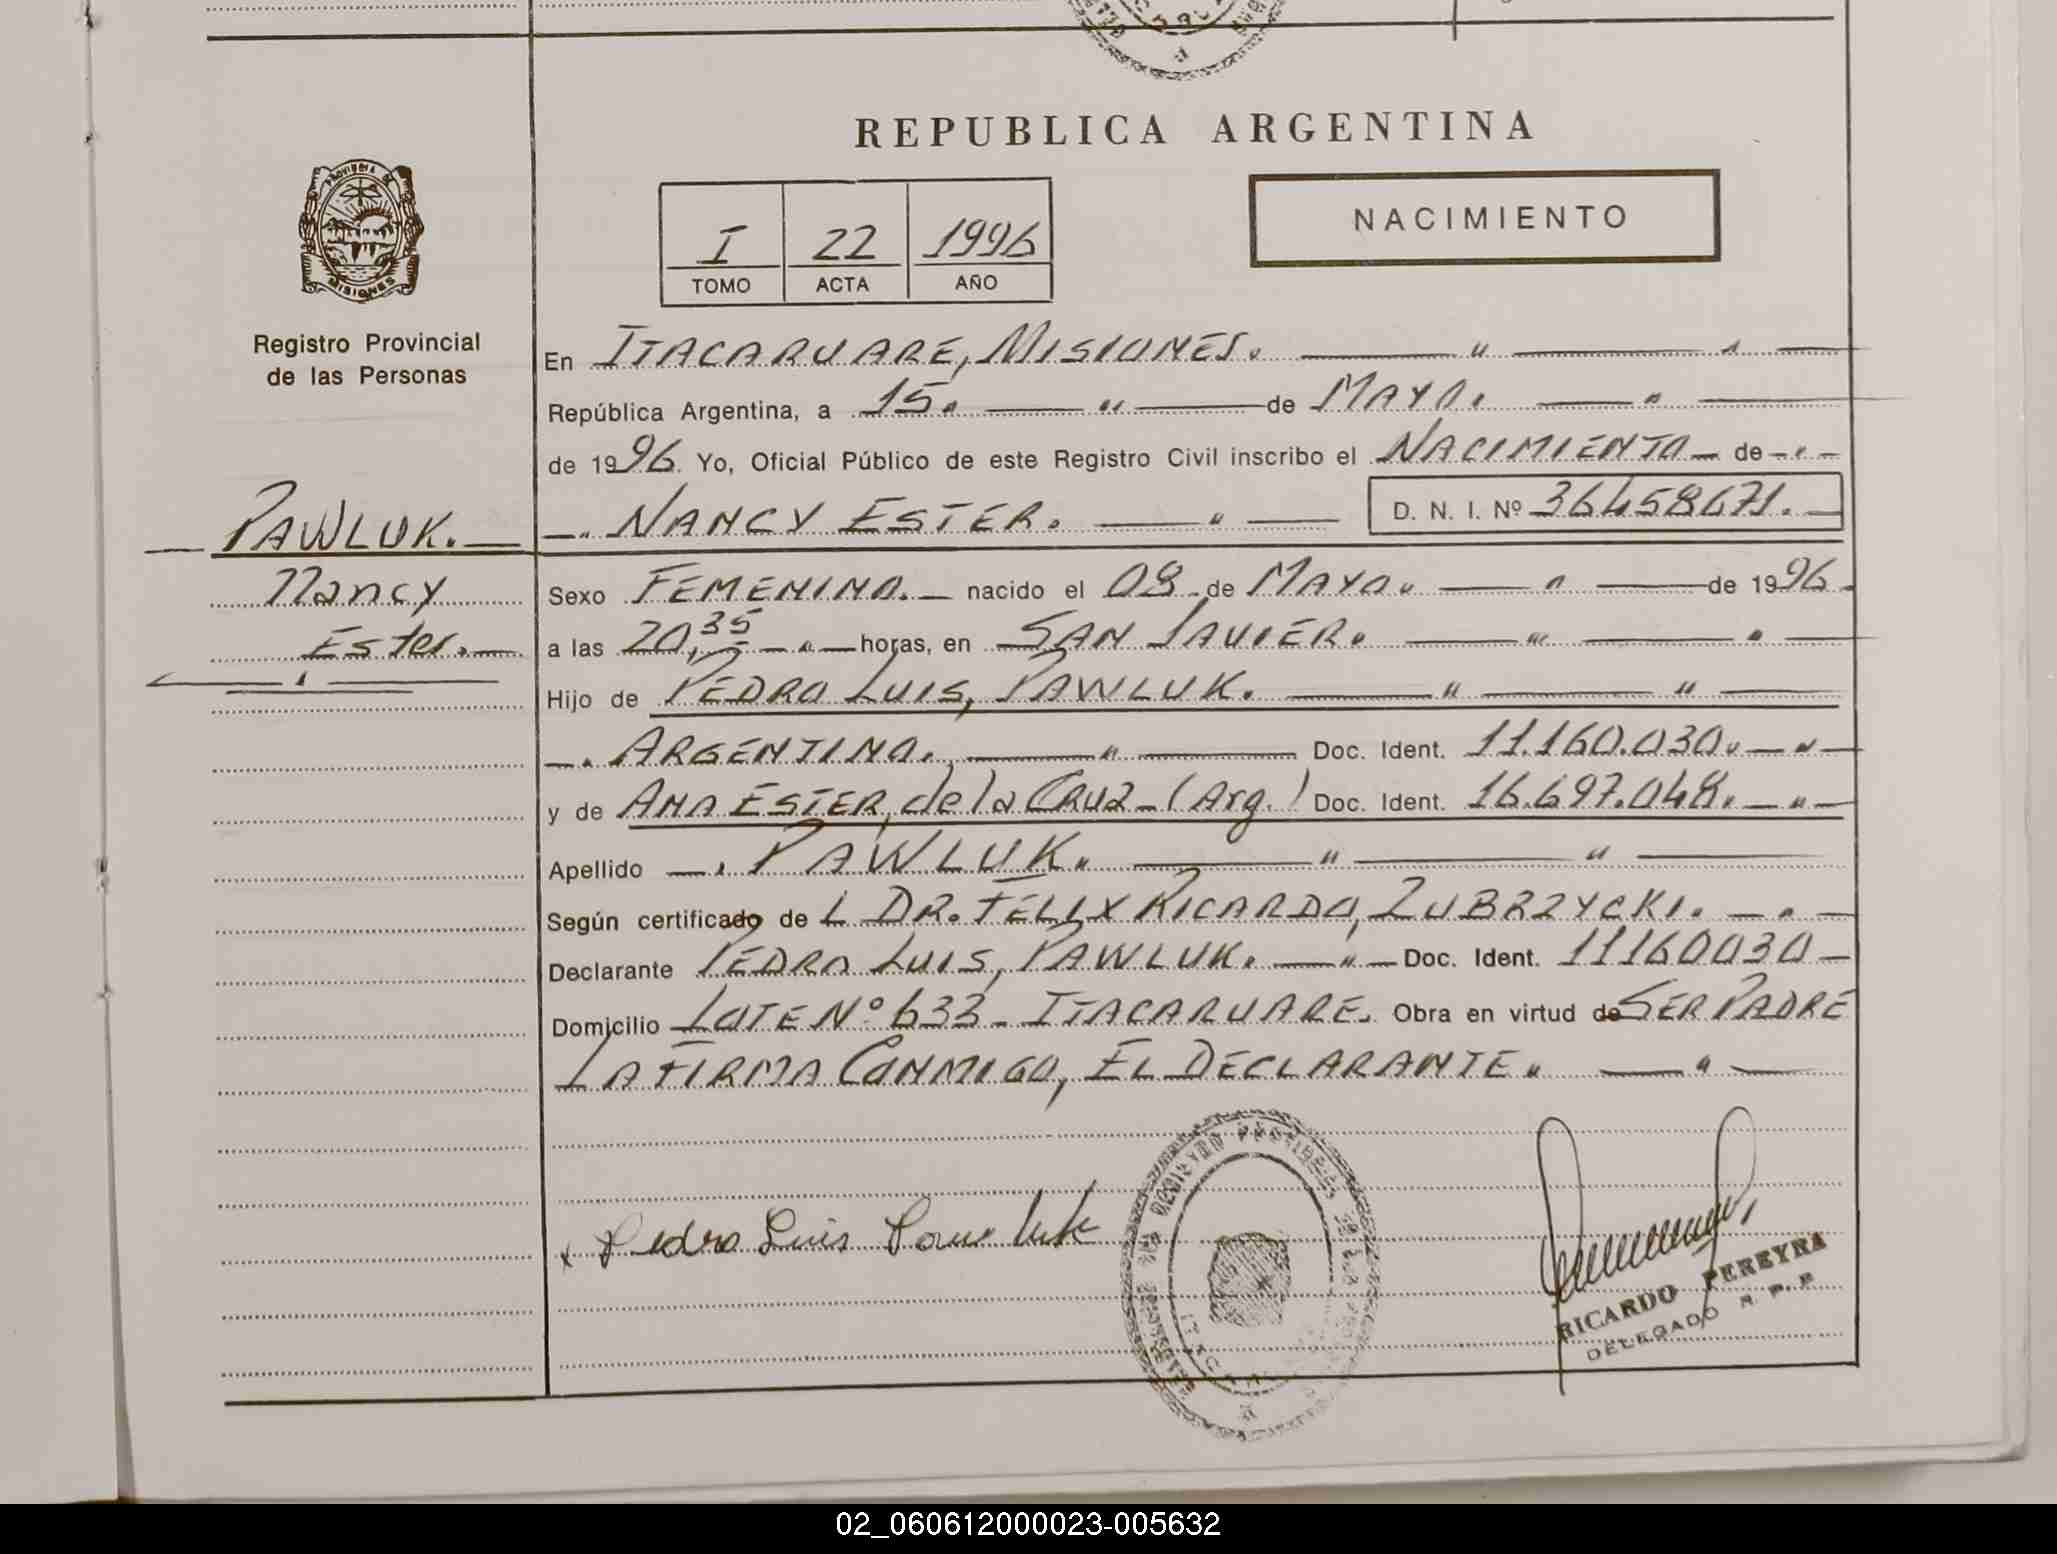 REPUBLICA ARGENTINA
PROVINCIA DE
MISIONES
Registro Provincial
de las Personas
I 22 1996
TOMO ACTA AÑO
NACIMIENTO
En ITACARUARE, MISIONES.
República Argentina, a 15. de MAYO.
de 1996 Yo, Oficial Público de este Registro Civil inscribo el NACIMIENTO de
PAWLUK.
NANCY ESTER. D. N. I. Nº 36458671.
Nancy
Ester.
Sexo FEMENINO. nacido el 08 de MAYO. de 1996.
a las 20,35 horas, en SAN JAVIER.
Hijo de PEDRO LUIS, PAWLUK.
ARGENTINO. Doc. Ident. 11.160.030.
y de ANA ESTER, de la CRUZ - (Arg.) Doc. Ident. 16.697.048.
Apellido PAWLUK.
Según certificado de L DR. FELIX RICARDO, ZUBRZYCKI.
Declarante PEDRO LUIS, PAWLUK. Doc. Ident. 11160030
Domicilio LOTE Nº 633 - ITACARUARE. Obra en virtud de SER PADRE
LA FIRMA CONMIGO, EL DECLARANTE.
x Pedro Luis Pawluk
RICARDO PEREYRA
DELEGADO R. P. P.
02_060612000023-005632